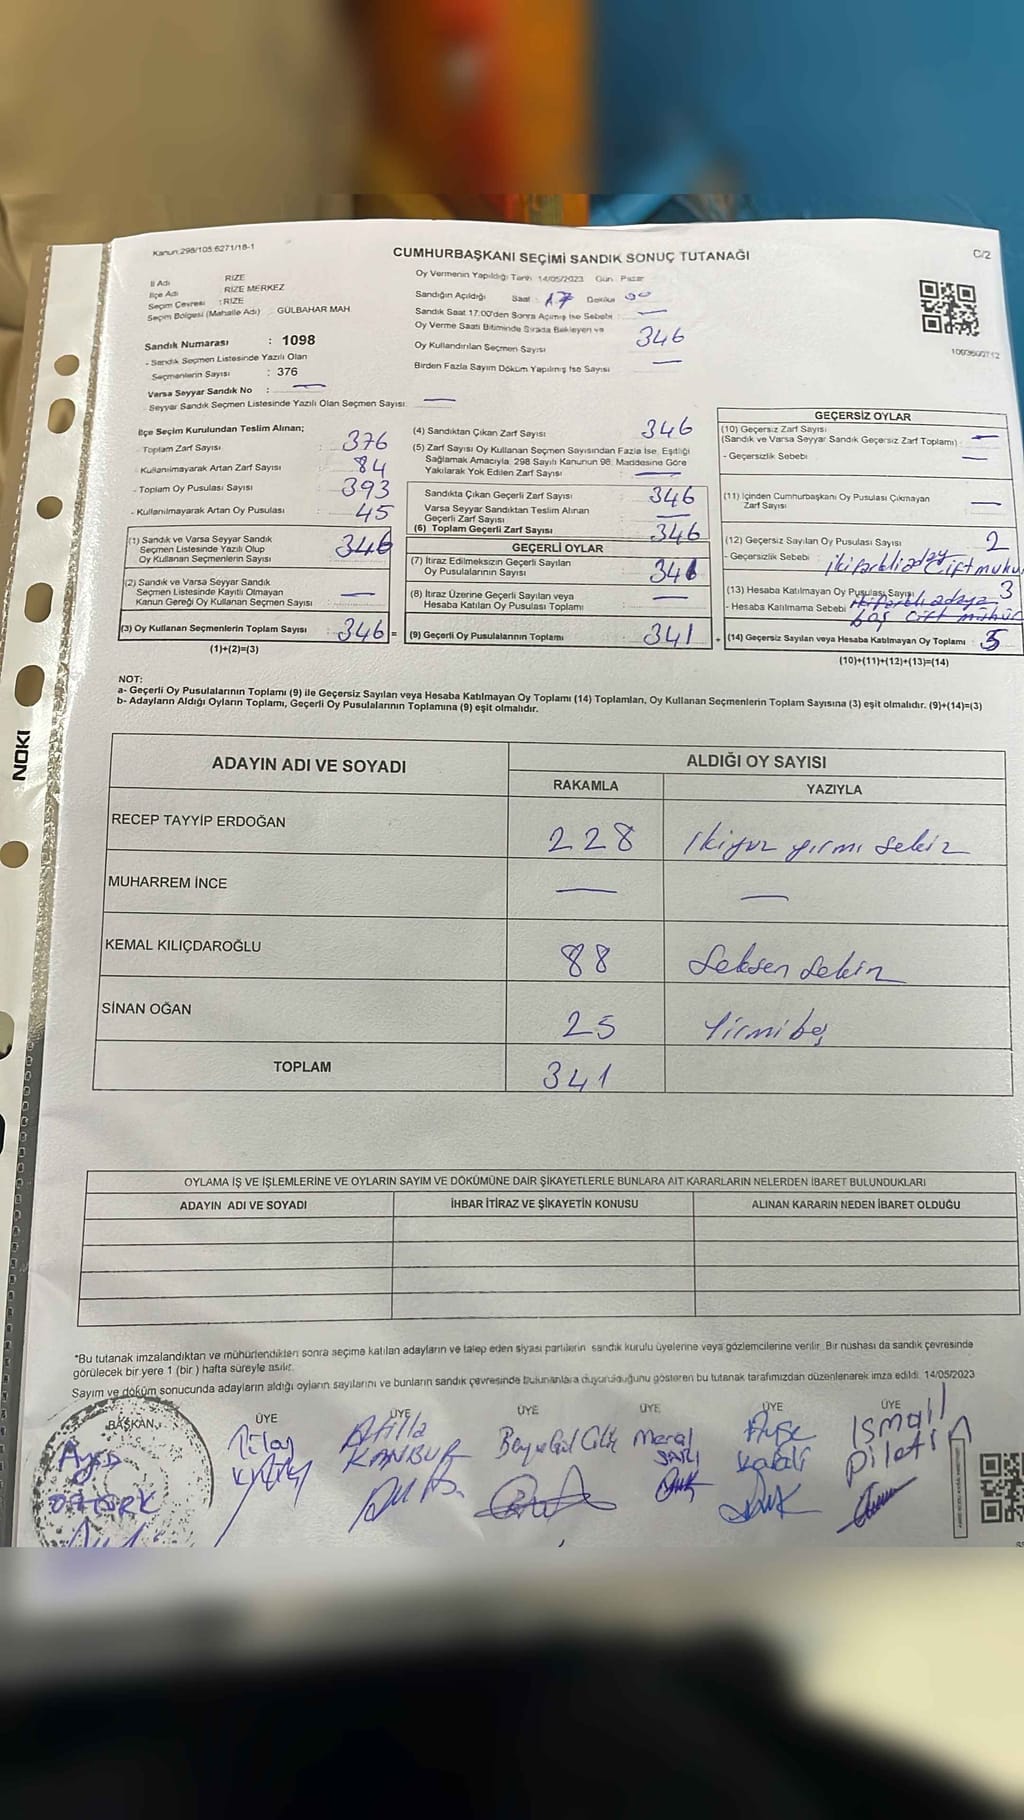 Kanun:298/105;6271/18-1
CUMHURBAŞKANI SEÇİMİ SANDIK SONUÇ TUTANAĞI
C/2
İl Adı RİZE
İlçe Adı : RİZE MERKEZ
Seçim Çevresi : RİZE
Seçim Bölgesi (Mahalle Adı) : GÜLBAHAR MAH
Sandık Numarası : 1098
- Sandık Seçmen Listesinde Yazılı Olan
Seçmenlerin Sayısı : 376
Varsa Seyyar Sandık No : —
- Seyyar Sandık Seçmen Listesinde Yazılı Olan Seçmen Sayısı: —
Oy Vermenin Yapıldığı Tarih: 14/05/2023 Gün: Pazar
Sandığın Açıldığı Saat : 17 Dakika 00
Sandık Saat 17.00'den Sonra Açılmış İse Sebebi : —
Oy Verme Saati Bitiminde Sırada Bekleyen ve
Oy Kullandırılan Seçmen Sayısı 346
Birden Fazla Sayım Döküm Yapılmış İse Sayısı —
İlçe Seçim Kurulundan Teslim Alınan;
- Toplam Zarf Sayısı : 376
- Kullanılmayarak Artan Zarf Sayısı : 84
- Toplam Oy Pusulası Sayısı : 393
- Kullanılmayarak Artan Oy Pusulası : 45
(1) Sandık ve Varsa Seyyar Sandık
Seçmen Listesinde Yazılı Olup
Oy Kullanan Seçmenlerin Sayısı : 346
(2) Sandık ve Varsa Seyyar Sandık
Seçmen Listesinde Kayıtlı Olmayan
Kanun Gereği Oy Kullanan Seçmen Sayısı : —
(3) Oy Kullanan Seçmenlerin Toplam Sayısı : 346 =
(1)+(2)=(3)
(4) Sandıktan Çıkan Zarf Sayısı : 346
(5) Zarf Sayısı Oy Kullanan Seçmen Sayısından Fazla İse, Eşitliği
Sağlamak Amacıyla, 298 Sayılı Kanunun 98. Maddesine Göre
Yakılarak Yok Edilen Zarf Sayısı : —
Sandıkta Çıkan Geçerli Zarf Sayısı : 346
Varsa Seyyar Sandıktan Teslim Alınan
Geçerli Zarf Sayısı : —
(6) Toplam Geçerli Zarf Sayısı : 346
GEÇERLİ OYLAR
(7) İtiraz Edilmeksizin Geçerli Sayılan
Oy Pusulalarının Sayısı : 341
(8) İtiraz Üzerine Geçerli Sayılan veya
Hesaba Katılan Oy Pusulası Toplamı : —
(9) Geçerli Oy Pusulalarının Toplamı : 341 +
GEÇERSİZ OYLAR
(10) Geçersiz Zarf Sayısı
(Sandık ve Varsa Seyyar Sandık Geçersiz Zarf Toplamı) : —
- Geçersizlik Sebebi : —
(11) İçinden Cumhurbaşkanı Oy Pusulası Çıkmayan
Zarf Sayısı : —
(12) Geçersiz Sayılan Oy Pusulası Sayısı : 2
- Geçersizlik Sebebi : iki farklı aday çift
(13) Hesaba Katılmayan Oy Pusulası Sayısı 3
- Hesaba Katılmama Sebebi boş
(14) Geçersiz Sayılan veya Hesaba Katılmayan Oy Toplamı : 5
(10)+(11)+(12)+(13)=(14)
NOT:
a- Geçerli Oy Pusulalarının Toplamı (9) ile Geçersiz Sayılan veya Hesaba Katılmayan Oy Toplamı (14) Toplamları, Oy Kullanan Seçmenlerin Toplam Sayısına (3) eşit olmalıdır. (9)+(14)=(3)
b- Adayların Aldığı Oyların Toplamı, Geçerli Oy Pusulalarının Toplamına (9) eşit olmalıdır.
ADAYIN ADI VE SOYADI
ALDIĞI OY SAYISI
RAKAMLA YAZIYLA
RECEP TAYYİP ERDOĞAN 228 İkiyüz yirmi sekiz
MUHARREM İNCE — —
KEMAL KILIÇDAROĞLU 88 Seksen sekiz
SİNAN OĞAN 25 Yirmi beş
TOPLAM 341
OYLAMA İŞ VE İŞLEMLERİNE VE OYLARIN SAYIM VE DÖKÜMÜNE DAİR ŞİKAYETLERLE BUNLARA AİT KARARLARIN NELERDEN İBARET BULUNDUKLARI
ADAYIN ADI VE SOYADI İHBAR İTİRAZ VE ŞİKAYETİN KONUSU ALINAN KARARIN NEDEN İBARET OLDUĞU
*Bu tutanak imzalandıktan ve mühürlendikten sonra seçime katılan adayların ve talep eden siyasi partilerin sandık kurulu üyelerine veya gözlemcilerine verilir. Bir nüshası da sandık çevresinde
görülecek bir yere 1 (bir) hafta süreyle asılır.
Sayım ve döküm sonucunda adayların aldığı oyların sayılarını ve bunların sandık çevresinde bulunanlara duyurulduğunu gösteren bu tutanak tarafımızdan düzenlenerek imza edildi. 14/05/2023
BAŞKAN ÜYE ÜYE ÜYE ÜYE ÜYE ÜYE
Atilla KANBUR
Meral
Ayşe
İsmail
NOKI